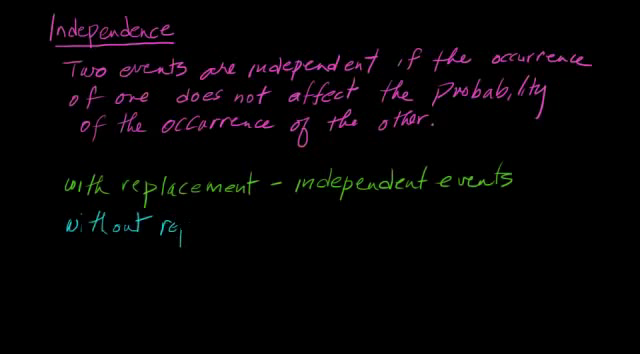 Independence
Two events are independent if the occurrence
of one does not affect the Probability
of the occurrence of the other.
with replacement - independent events
without rep